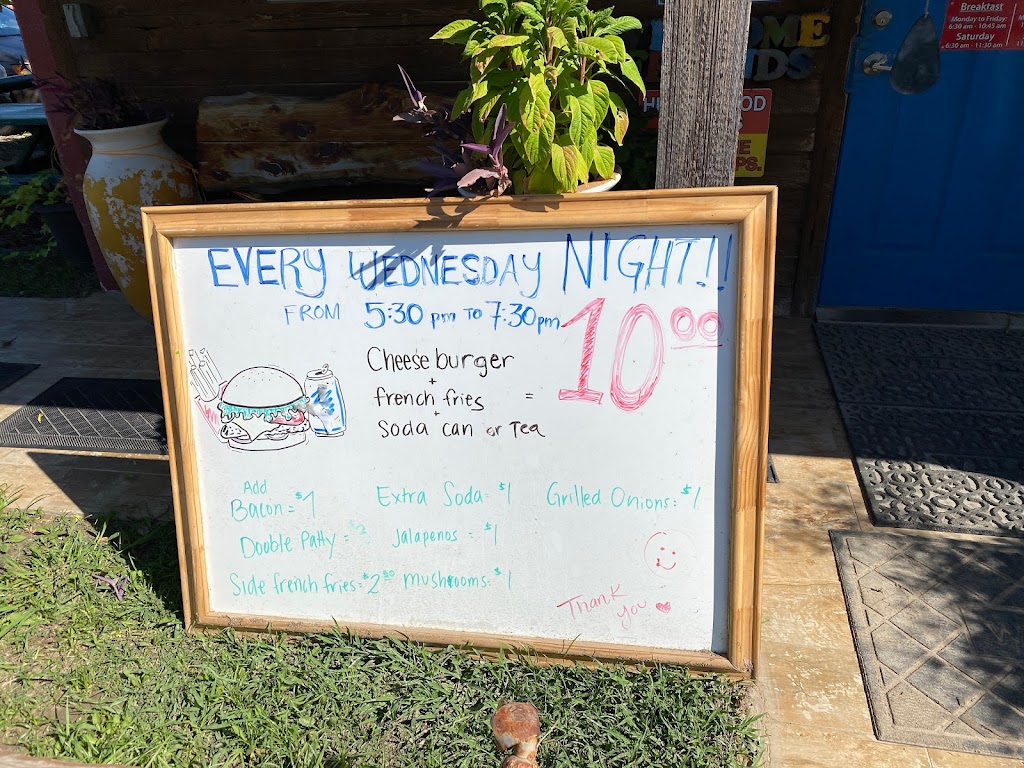 Breakfast
Monday to Friday:
6:30 am - 10:45 am
Saturday
6:30 am - 11:30 am
OME
DS
OD
PS.
EVERY WEDNESDAY NIGHT!!
FROM 5:30 pm TO 7:30pm
10.00
Cheeseburger
+
french fries =
+
Soda can or Tea
Add
Bacon = $1 Extra Soda: $1 Grilled Onions: $1
Double Patty = Jalapenos = $1
Side french fries: $2.50 mushrooms: $1
Thank
you